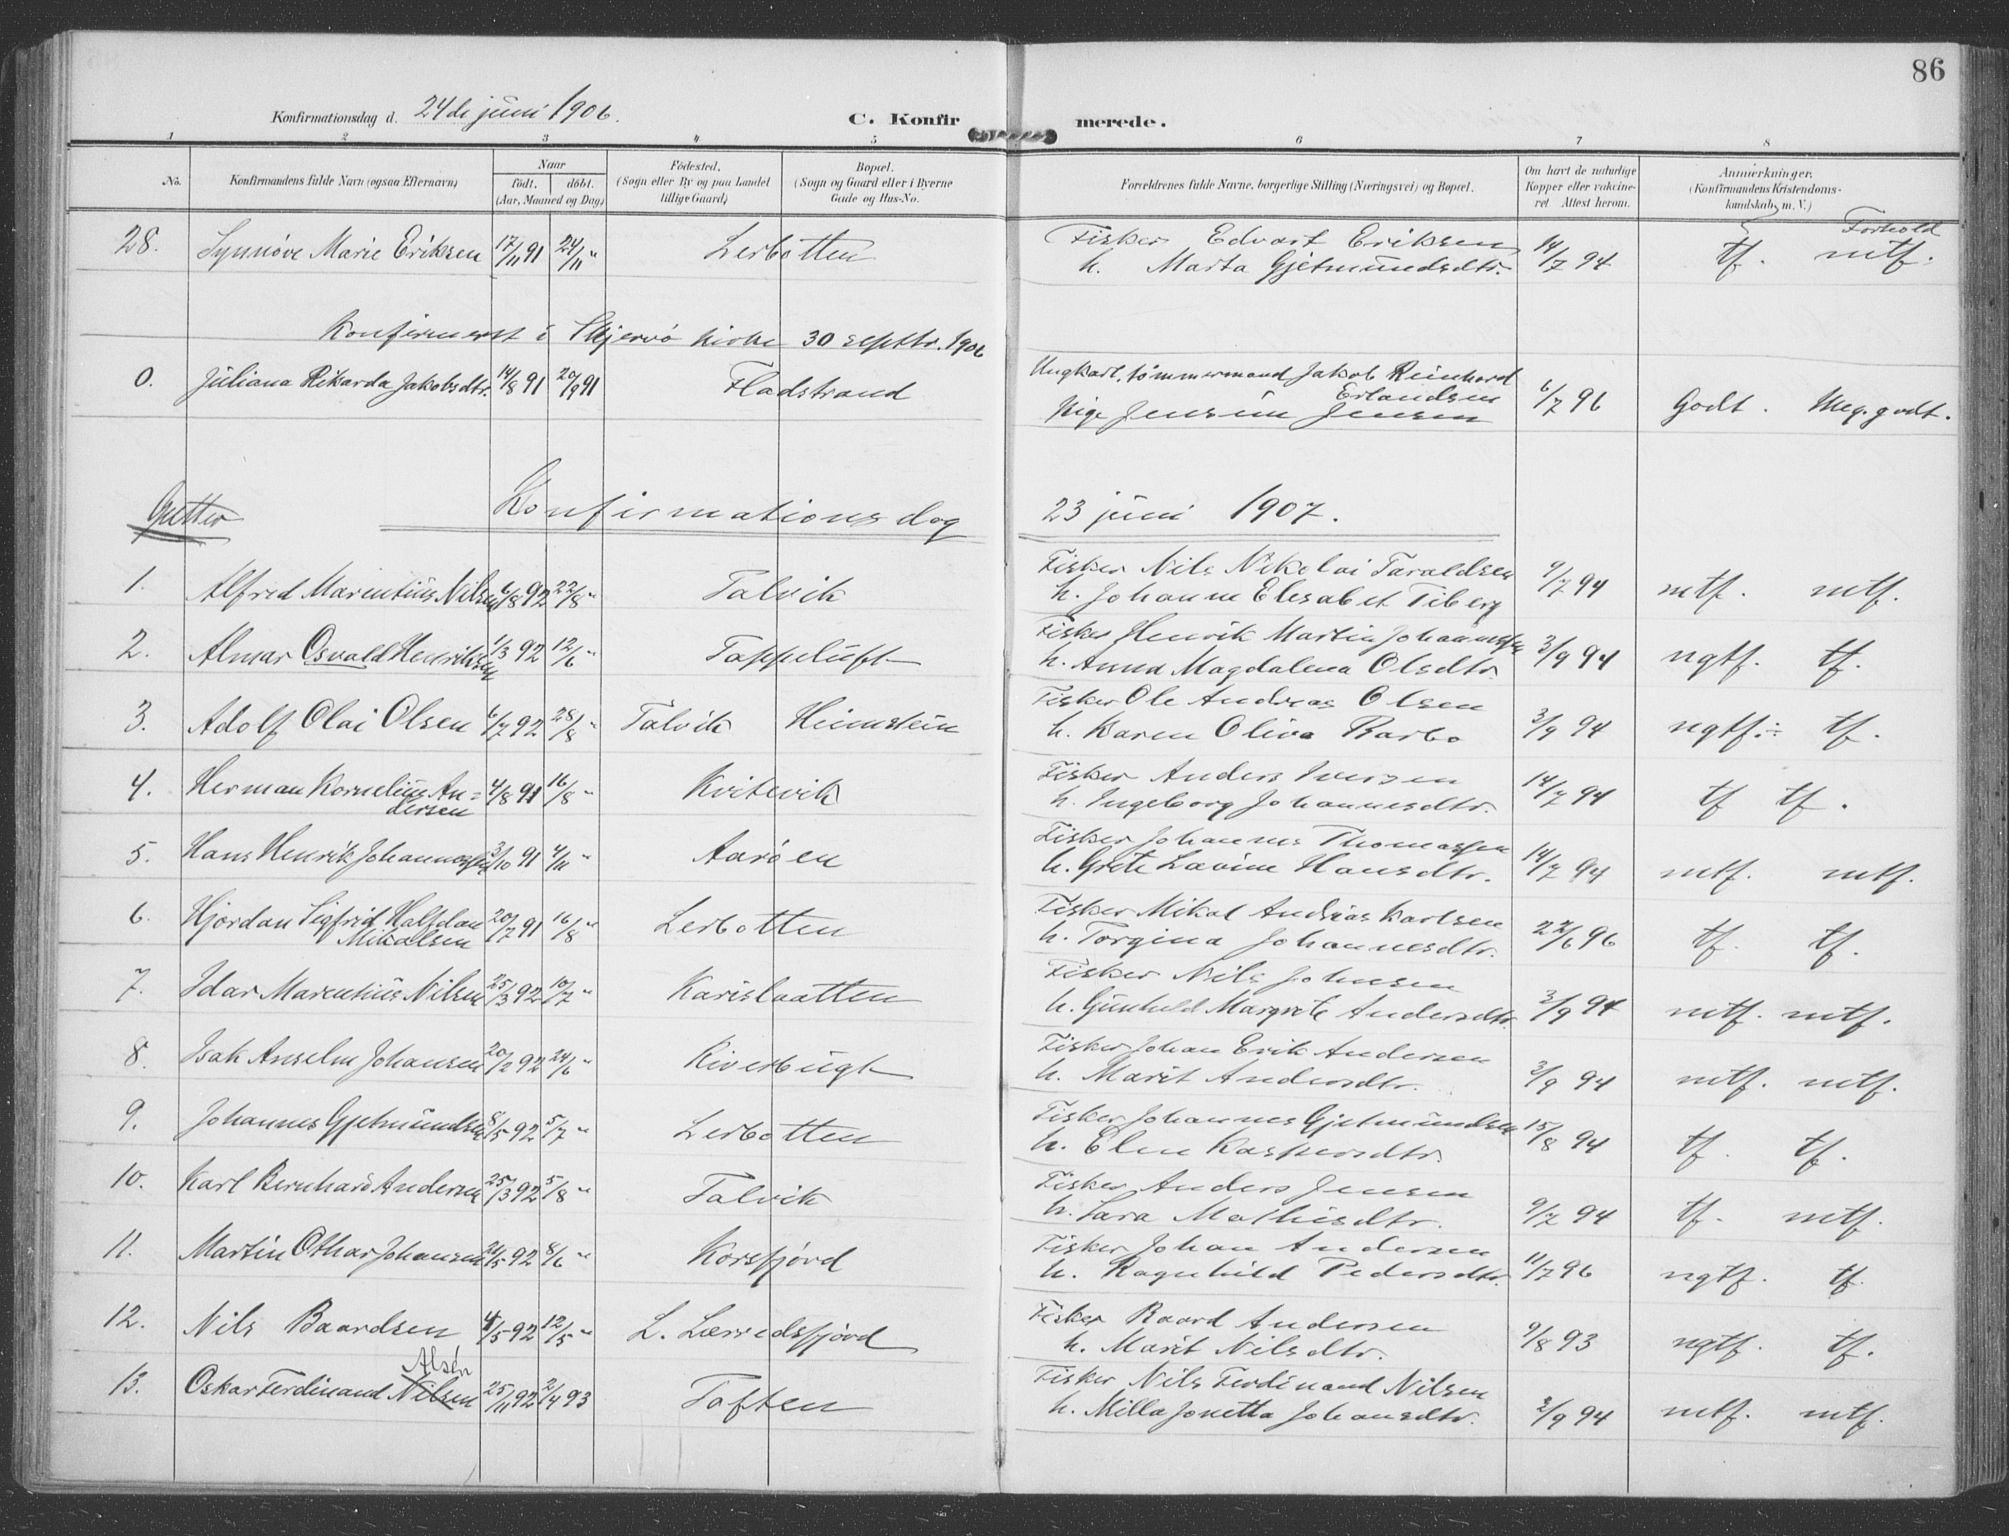 86
Konfirmationsdag d. 24de juni 1906.
C. Konfirmerede.
1 2 3 4 5 6 7 8
No.
Konfirmandens fulde Navn (ogsaa Efternavn)
Naar
født. døbt.
(Aar, Maaned og Dag)
Fødested.
(Sogn eller By og paa Landet
tillige Gaard)
Bopæl.
(Sogn og Gaard eller i Byerne
Gade og Hus-No.
Forældrenes fulde Navne, borgerlige Stilling (Næringsvei) og Bopæl.
Om havt de naturlige
Kopper eller vakcine-
ret. Attest herom.
Anmerkninger.
(Konfirmandens Kristendoms-
kundskab m. V.)
Forhold
28. Synnöve Marie Eriksen 17/11 91 24/11 " Lerbotten Fisker Edvart Eriksen 14/7 94 tf. mtf.
h. Marta Gjetmundsdtr.
Konfirmert i Skjervö kirke 30 septbr. 1906
0. Juliana Rikarda Jakobsdtr. 14/8 91 20/9 91 Fladstrand Ungkarl, tömmermand Jakob Reinhard
Erlandsen 6/7 96 Godt. Meg. godt.
Pige Jensine Jensen
Gutter Konfirmationsdag 23 juni 1907.
1. Alfred Marentius Nilsen 6/8 92 22/8 " Talvik Fisker Nils Nikolai Taraldsen 9/7 94 mtf. mtf.
h. Johanne Elesabet Tiberg
2. Almar Osvald Henriksen 1/3 92 12/6 " Tappeluft Fisker Henrik Martin Johannessen 3/9 94 ngtf. tf.
h. Anna Magdalena Olsdtr.
3. Adolf Olai Olsen 6/7 92 28/8 " Talvik Heimstein Fisker Ole Andreas Olsen 3/9 94 ngtf. ÷ tf.
h. Karen Oliva Barbo
4. Herman Kornelius An= 4/8 91 16/8 " Kvitevik Fisker Anders Iversen 14/7 94 tf tf.
dersen h. Ingeborg Johannesdtr.
5. Hans Henrik Johannessen 3/10 91 4/11 " Aaröen Fisker Johannes Thomassen 14/7 94 mtf. mtf.
h. Grete Lavine Hansdtr.
6. Hjordan Sigfrid Halfdan 20/7 91 16/8 " Lerbotten Fisker Mikal Andreas Karlsen 22/6 96 tf. tf.
Mikalsen h. Torgina Johannesdtr.
7. Idar Marentius Nilsen 25/3 92 10/7 " Karislaatten Fisker Nils Johnsen 3/9 94 mtf. mtf.
h. Gunhild Margrete Andersdtr.
8. Isak Anselm Johansen 20/2 92 24/6 " Riverbugt Fisker Johan Erik Andersen 3/9 94 mtf. mtf.
h. Marit Andersdtr.
9. Johannes Gjetmundsen 8/5 92 5/7 " Lerbotten Fisker Johannes Gjetmundsen 15/8 94 tf. tf.
h. Elen Kaspersdtr.
10. Karl Bernhard Andersen 25/3 92 5/8 " Talvik Fisker Anders Jensen 9/7 94 tf. mtf.
h. Sara Mathisdtr.
11. Martin Othar Johansen 21/5 92 8/6 " Korsfjord Fisker Johan Andersen 11/7 96 ngtf. tf.
h. Ragnhild Pedersdtr.
12. Nils Baardsen 4/5 92 12/5 " L. Lerredsfjord Fisker Baard Andersen 9/8 93 ngtf. tf.
h. Marit Nilsdtr.
Alsén
13. Oskar Ferdinand Nilsen 25/11 92 2/4 93 Toften Fisker Nils Ferdinand Nilsen 3/9 94 mtf. mtf.
h. Milla Jonetta Johansdtr.